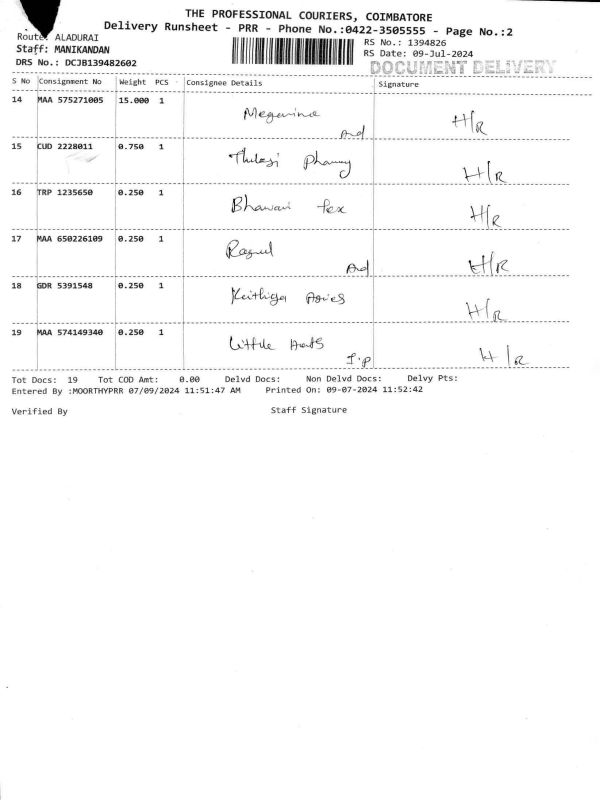 THE PROFESSIONAL COURIERS, COIMBATORE
Delivery Runsheet - PRR - Phone No.:0422-3505555 - Page No.:2
Route: ALADURAI
RS No.: 1394826
Staff: MANIKANDAN
RS Date: 09-Jul-2024
DRS No.: DCJB139482602
DOCUMENT DELIVERY
S No Consignment No Weight PCS Consignee Details Signature
14 MAA 575271005 15.000 1 H/R
15 CUD 2228011 0.750 1 H/R
16 TRP 1235650 0.250 1 Bhavani Tex H/R
17 MAA 650226109 0.250 1 H/R
18 GDR 5391548 0.250 1 H/R
19 MAA 574149340 0.250 1 Little H/R
I.p
Tot Docs: 19 Tot COD Amt: 0.00 Delvd Docs: Non Delvd Docs: Delvy Pts:
Entered By :MOORTHYPRR 07/09/2024 11:51:47 AM Printed On: 09-07-2024 11:52:42
Verified By Staff Signature